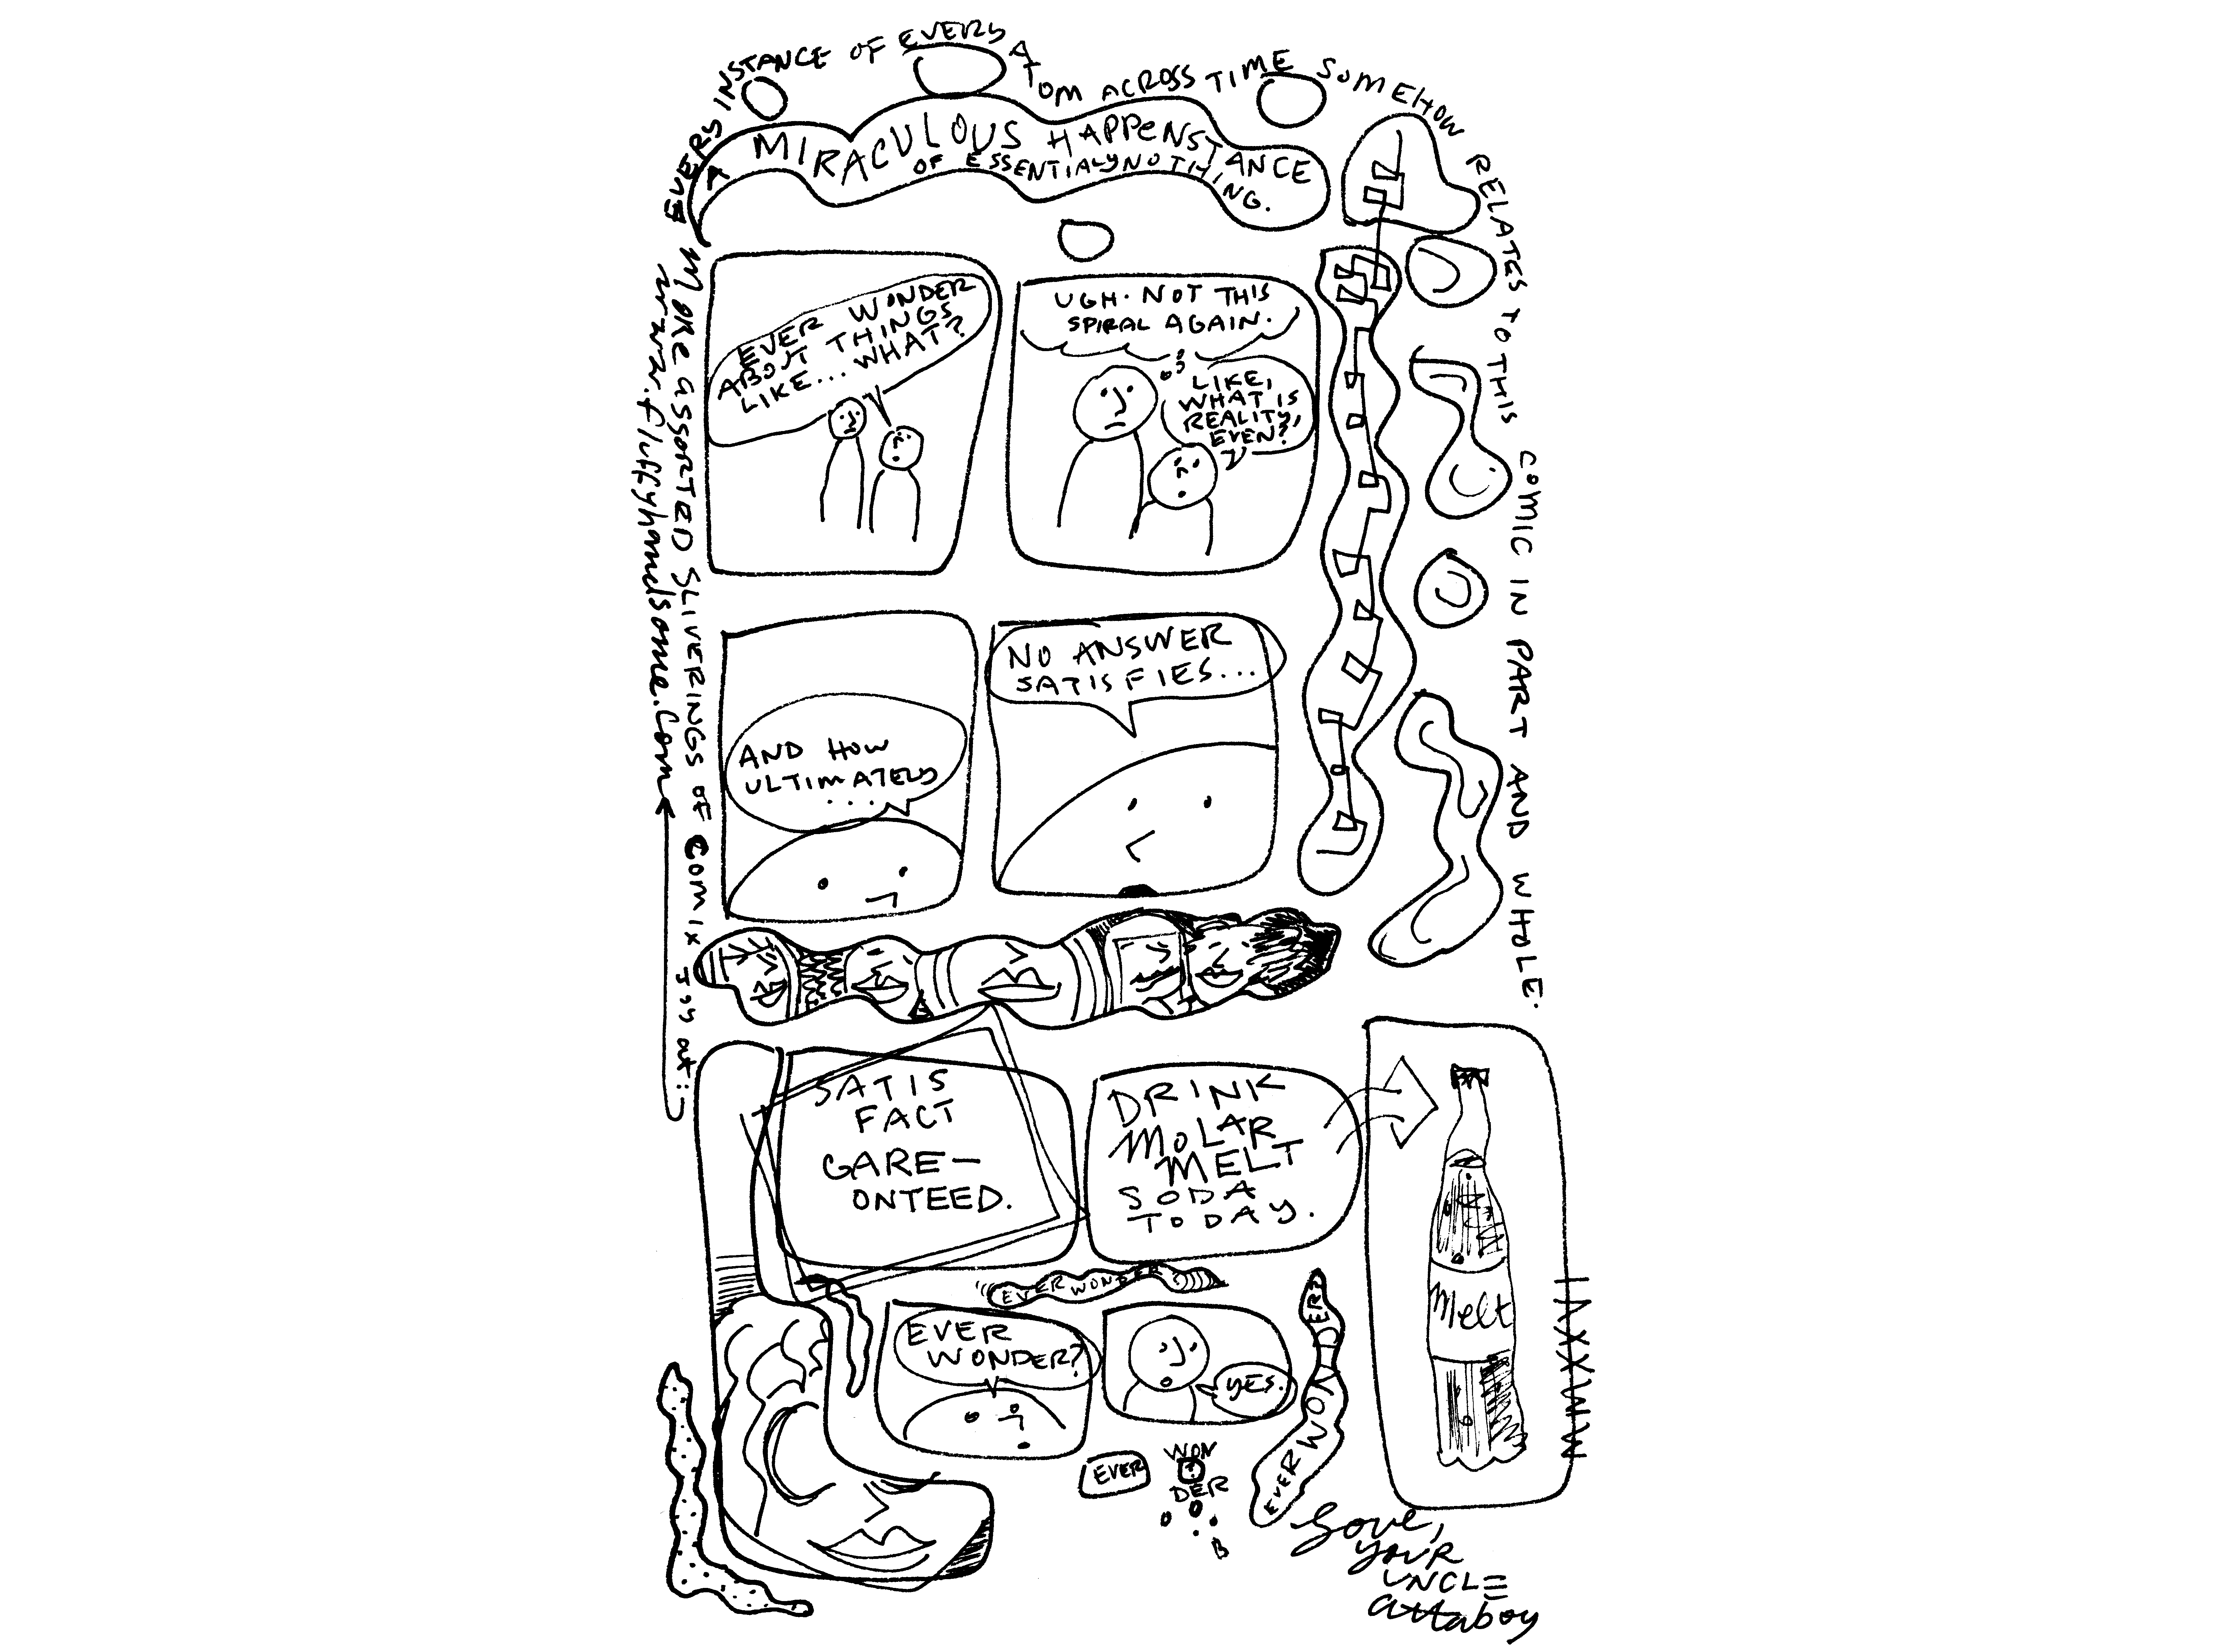 EVERY INSTANCE OF EVERY ATOM ACROSS TIME SOMEHOW RELATES TO THIS COMIC IN PART AND WHOLE.
A MIRACULOUS HAPPENSTANCE
OF ESSENTIALYNOTHING.
MORE ASSORTED SLIVERINGS OF COMIX JOY at:
www.fluffyhandsome.com
EVER WONDER
ABOUT THINGS
LIKE... WHAT?
UGH. NOT THIS
SPIRAL AGAIN.
LIKE,
WHAT IS
REALITY,
EVEN?
AND HOW
ULTIMATELY
...
NO ANSWER
SATISFIES...
SATIS
FACT
GARE-
ONTEED.
DRINK
MOLAR
MELT
SODA
TODAY.
Melt
EVER WONDER
EVER
WONDER?
YES.
EVER WONDER?
EVER
WON
?
DER
Love,
YOUR
UNCLE
attaboy